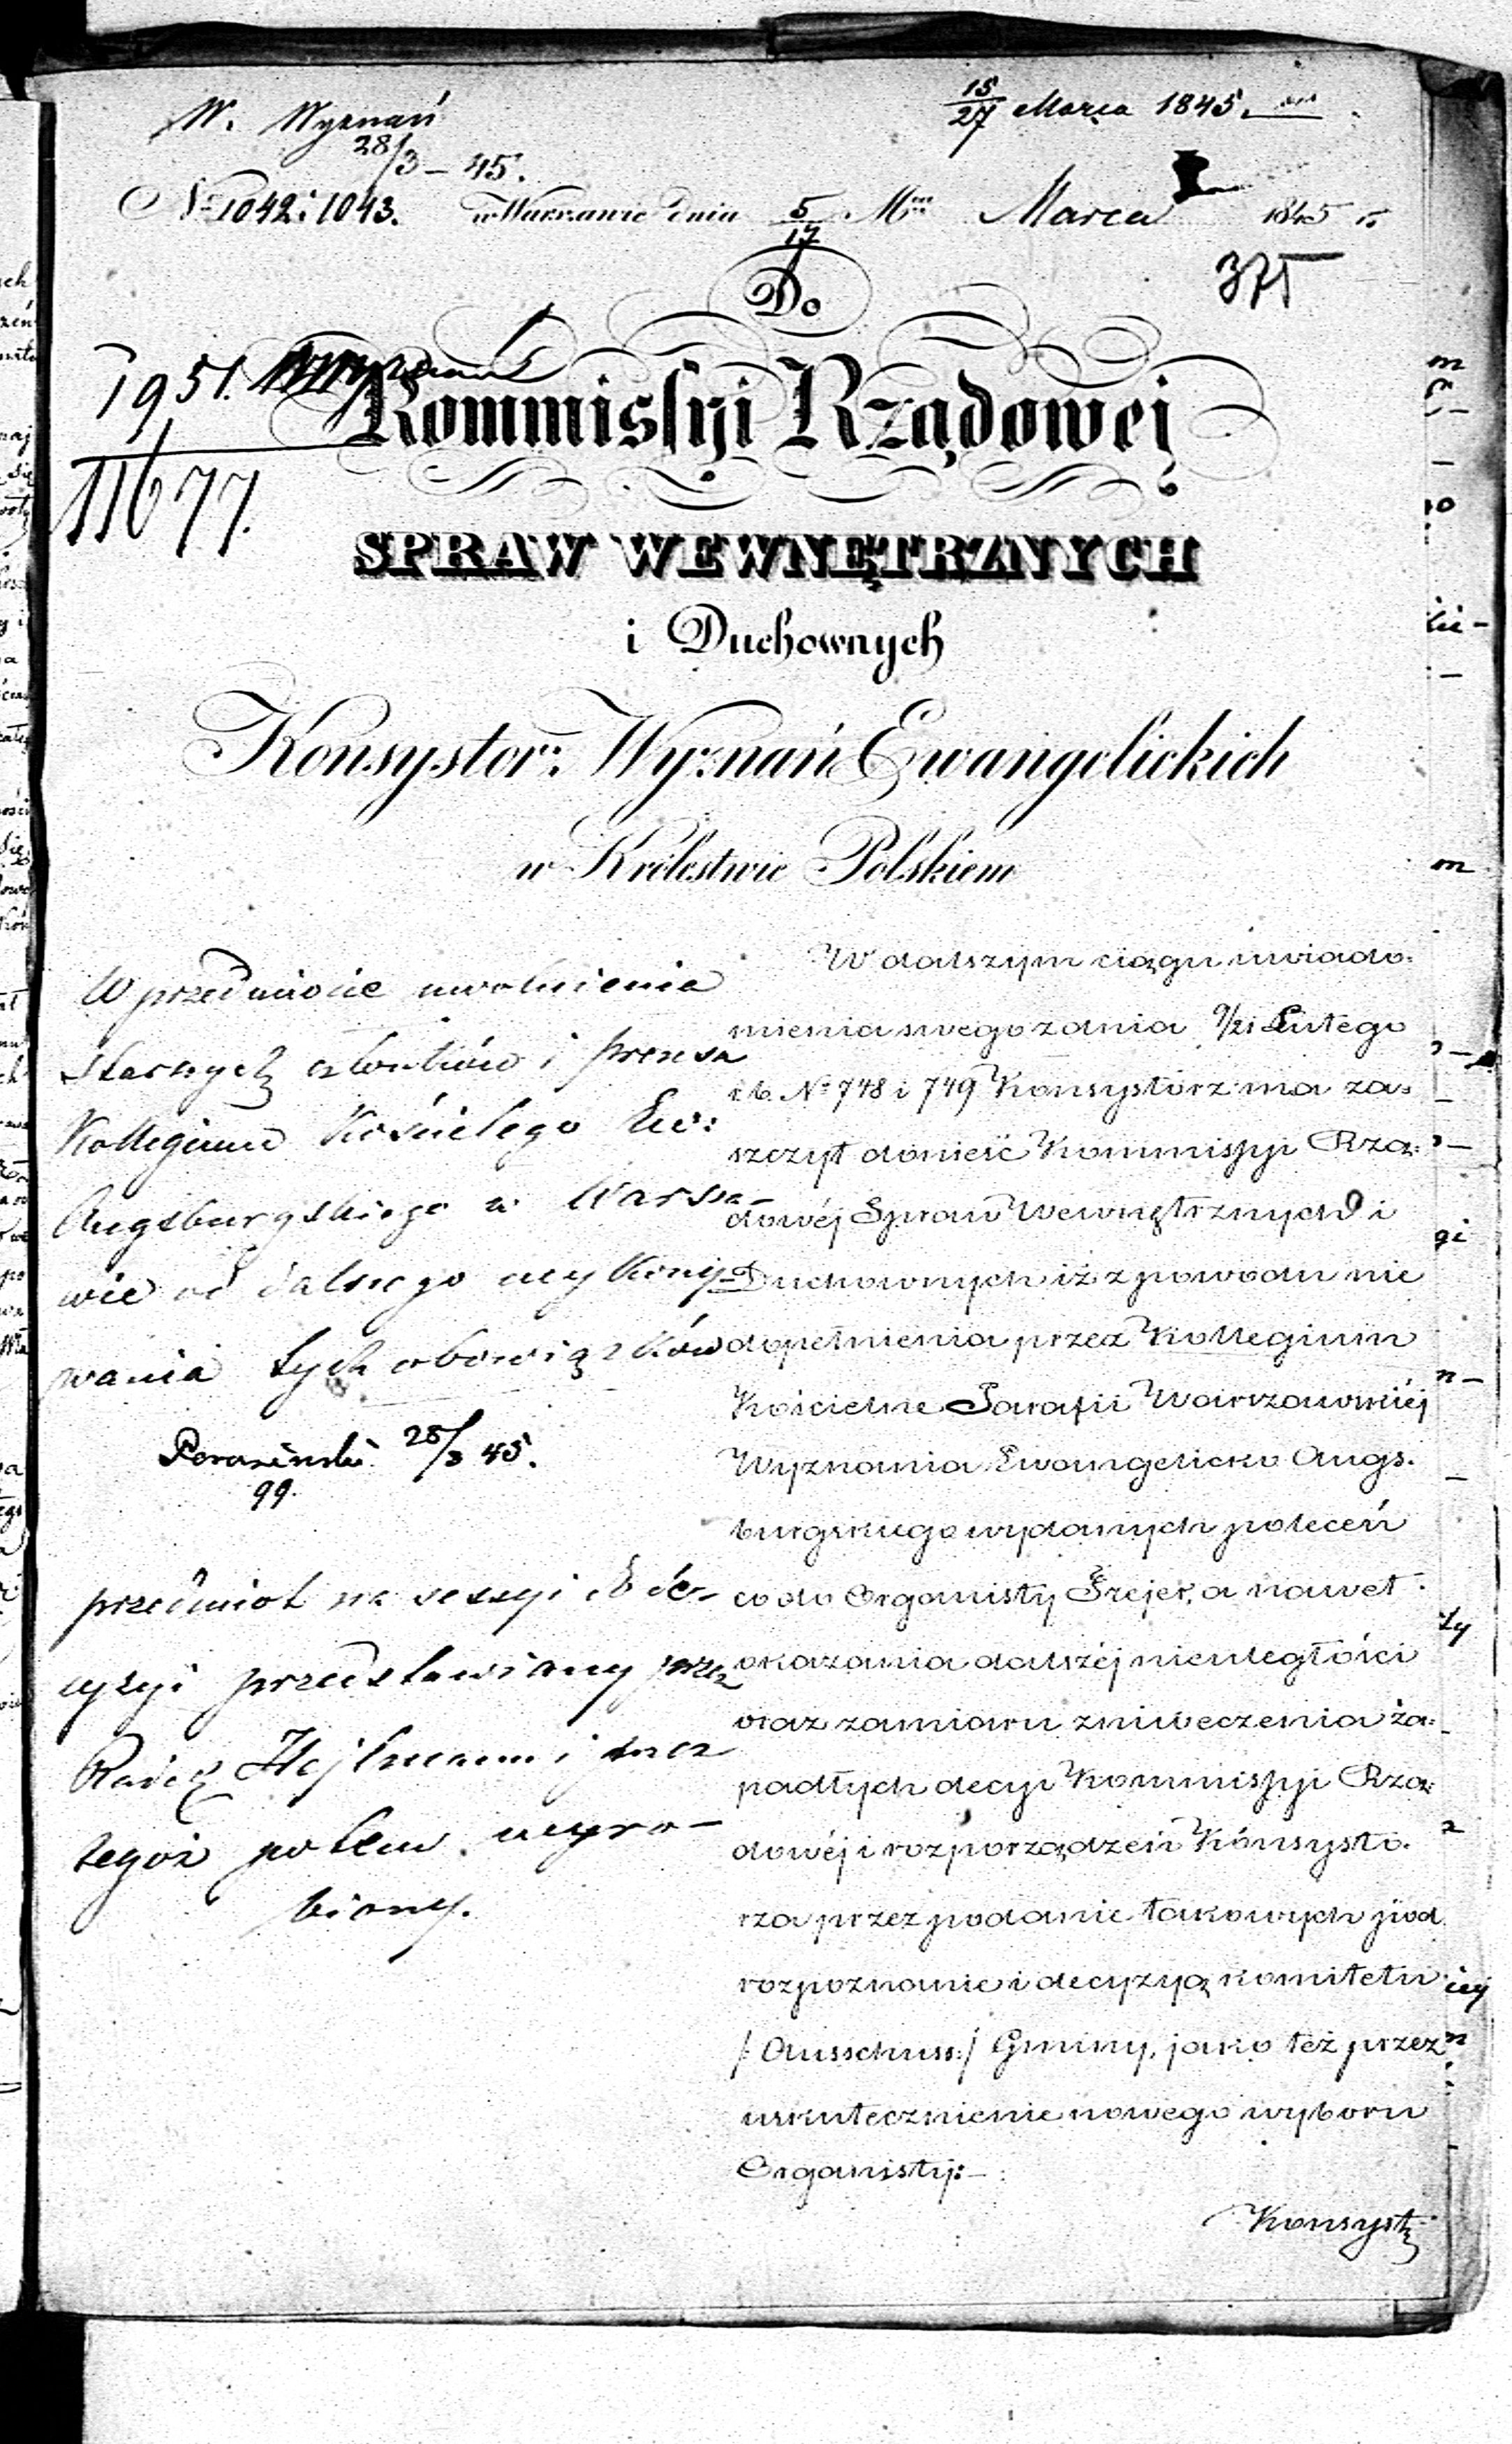 W. Wyznań
28/3 – 45.
15/27 Marca 1845.
№ 1042 i 1043. w Warszawie dnia 5/17 Mca Marca 1845 r.
375
Do
1951.
11677.
Kommissyi Rządowej
SPRAW WEWNĘTRZNYCH
i Duchownych
Konsystor: Wyznań Ewangelickich
w Królestwie Polskiem
W przedmiocie uwolnienia
starszych członków i prezesa
Kollegium Kościelego Ew:
Augsburgskiego w Warsza
wie od dalszego wykony
wania tych obowiązków
28/3 45.
99.
przedmiot na sessyi do de-
cyzyi przedstawiony przez
Radcę Hejlman i przez
tegoż potem wypra-
biony.
W dalszym ciągu uwiado:
mienia swego z dnia 9/21 Lutego
r. b. № 748 i 749 Konsystorz ma za-
szczyt donieść Kommissyi Rzą:
dowéj Spraw Wewnętrznych i
Duchownych iż z powodu nie
dopełnienia przez Kollegium
Kościelne Parafii Warszawskiéj
Wyznania Ewangelicko Augs.
burgskiego wydanych poleceń
co do Organisty Frejer, a nawet
okazania dalszéj nieuległości
oraz zamiaru zniweczenia za:
padłych decyi Kommissyi Rzą:
dowéj i rozporządzeń Konsysto.
rza przez podanie takowych pod
rozpoznanie i decyzyą komitetu
/: Ausschuss:/ Gminy, jako też przez
uskutecznienie nowego wyboru
Organisty:–
Konsyst